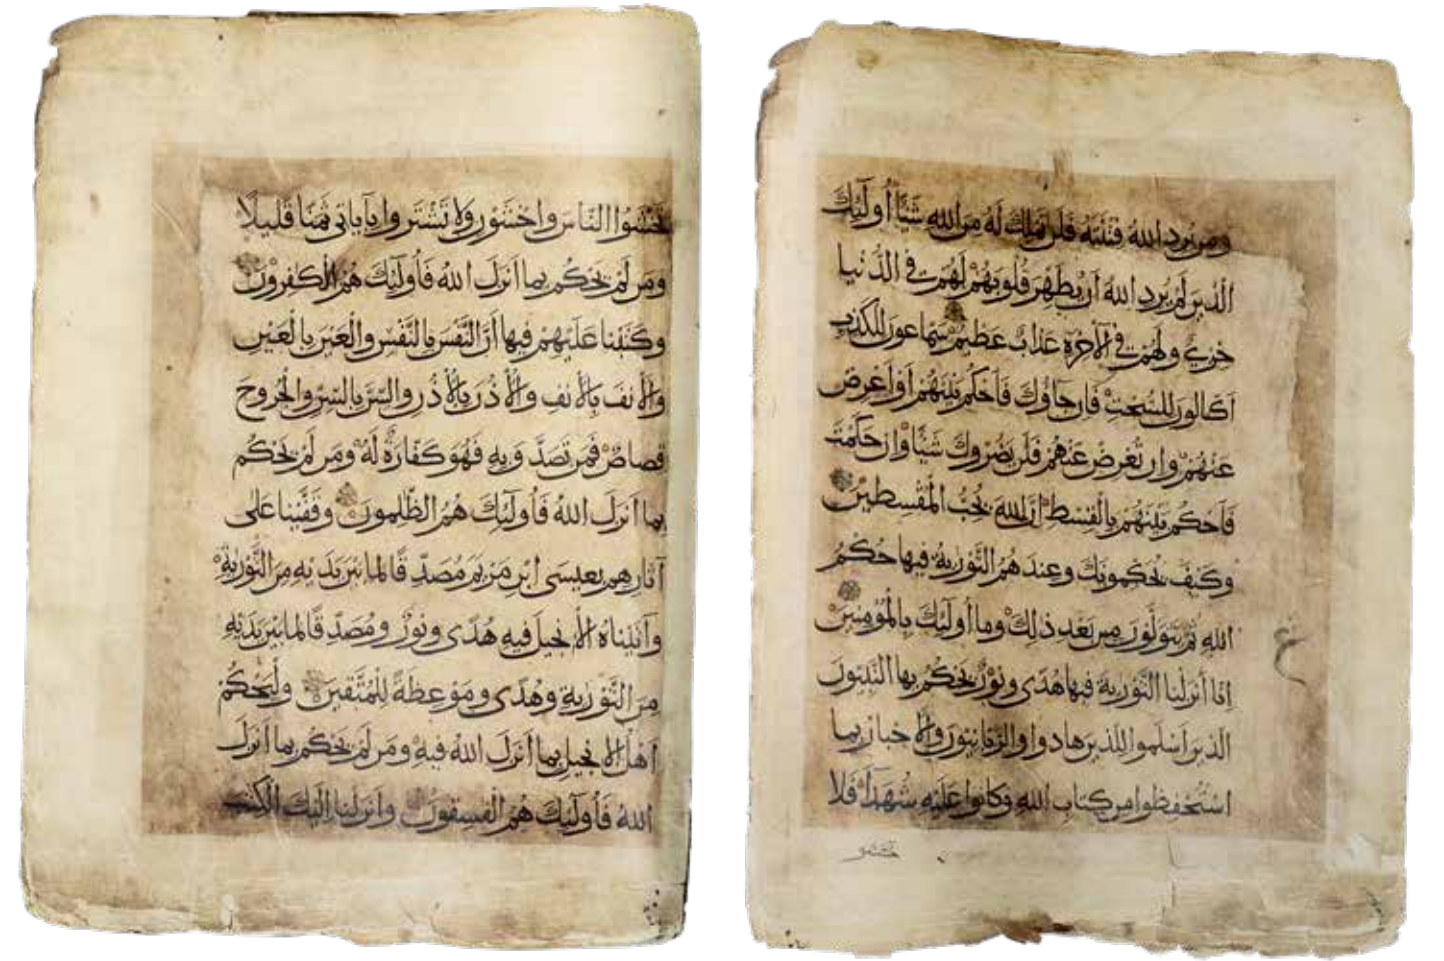 ومن يرد الله فتنته فلن تملك له من الله شيأ أولئك
الذين لم يرد الله أن يطهر قلوبهم لهم في الدنيا
خزي ولهم في الآخرة عذاب عظيم سماعون للكذب
أكالون للسحت فإن جاؤك فاحكم بينهم أو أعرض
عنهم وإن تعرض عنهم فلن يضروك شيأ وإن حكمت
فاحكم بينهم بالقسط إن الله يحب المقسطين
وكيف يحكمونك وعندهم التورية فيها حكم
الله ثم يتولون من بعد ذلك وما أولئك بالمؤمنين
ع
إنا أنزلنا التورية فيها هدى ونور يحكم بها النبيون
الذين أسلموا للذين هادوا والربانيون والأحبار بما
استحفظوا من كتاب الله وكانوا عليه شهدآء فلا
تخشو
تخشوا الناس واخشون ولا تشتروا بآياتي ثمنا قليلا
ومن لم يحكم بما أنزل الله فأولئك هم الكفرون
وكتبنا عليهم فيها أن النفس بالنفس والعين بالعين
والأنف بالأنف والأذن بالأذن والسن بالسن والجروح
قصاص فمن تصدق به فهو كفارة له ومن لم يحكم
بما أنزل الله فأولئك هم الظلمون وقفينا على
آثارهم بعيسى ابن مريم مصدقا لما بين يديه من التورية
وآتيناه الإنجيل فيه هدى ونور ومصدقا لما بين يديه
من التورية وهدى وموعظة للمتقين وليحكم
أهل الإنجيل بما أنزل الله فيه ومن لم يحكم بما أنزل
الله فأولئك هم الفسقون وأنزلنا إليك الكتب